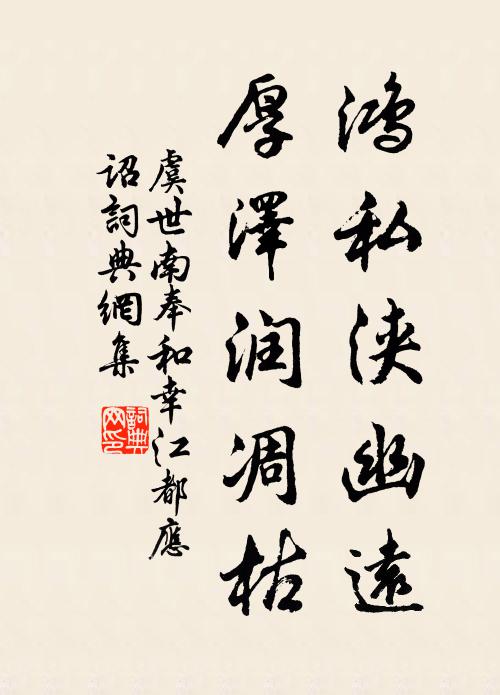 鴻私浹幽遠
厚澤潤凋枯
虞世南奉和幸江都應
詔詞典網集
詞典
网印